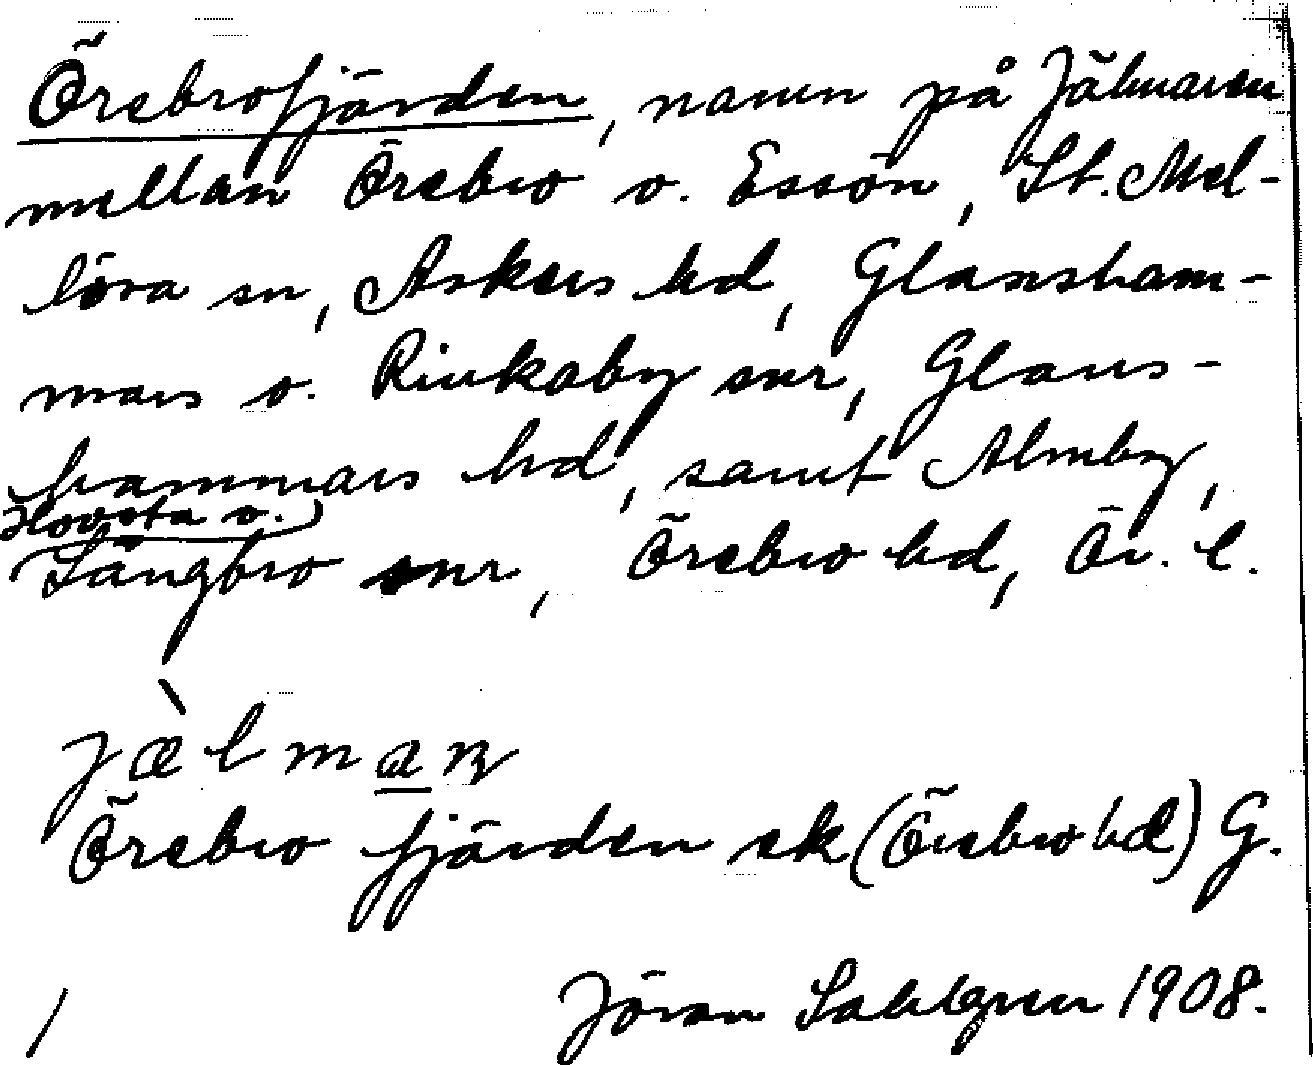 Örebrofjärden, namn på Jälmaren
mellan Örebro o. Essön, St. Mel-
lösa sn, Askers hd, Glansham-
mars o. Rinkaby snr, Glans-
hammars hd, samt Almby,
Hovsta o.
Längbro snr, Örebro hd, Ör. l.
jàlmaɳ
Örebro fjärden ek (Örebro hd) G.
Jöran Sahlgren 1908.